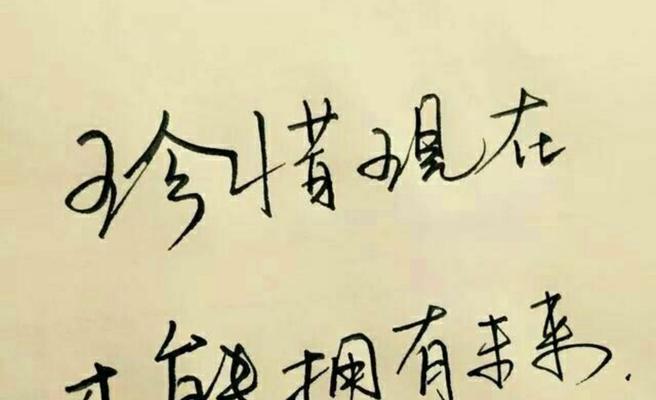 珍惜现在
才能拥有未来.